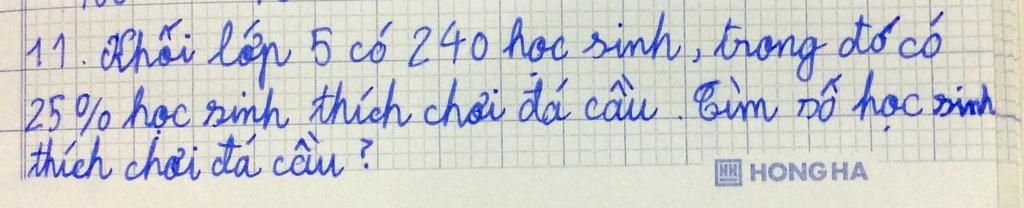 11. Khối lớp 5 có 240 học sinh, trong đó có
25% học sinh thích chơi đá cầu. Tìm số học sinh
thích chơi đá cầu?
HH HONG HA